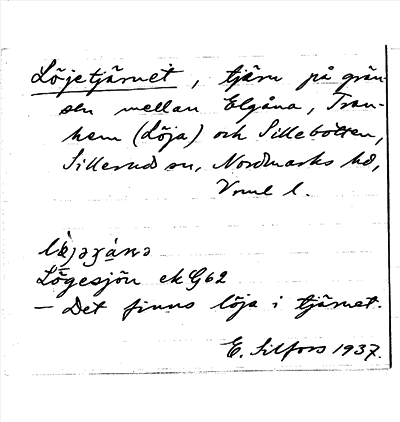 Löjetjärnet, tjärn på grän-
sen mellan Elgåna, Tran-
kem (Löja) och Sillebotten,
Sillerud sn, Nordmarks hd,
Vrml l.
Lögesjön ek G62
– Det finns löja i tjärnet.
E. Silfors 1937.